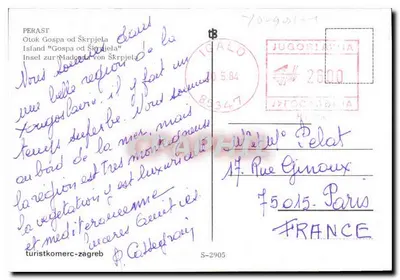 PERAST
Otok Gospa od Škrpjela
Island "Gospa od Škrpjela"
Insel zur Madonna von Škrpjela
Nous sommes dans
une belle région de la
Yougoslavie. il y fait un
temps superbe. Nous sommes
au bord de la mer, mais
la région est très montagneuse
la vegetation y est luxuriante
et mediterranéenne
Amitiés
turistkomerc-zagreb
S-2905
IGALO
5.84
85347
JUGOSLAVIJA
2800
Pelat
17, Rue Ginoux
75015. Paris
FRANCE